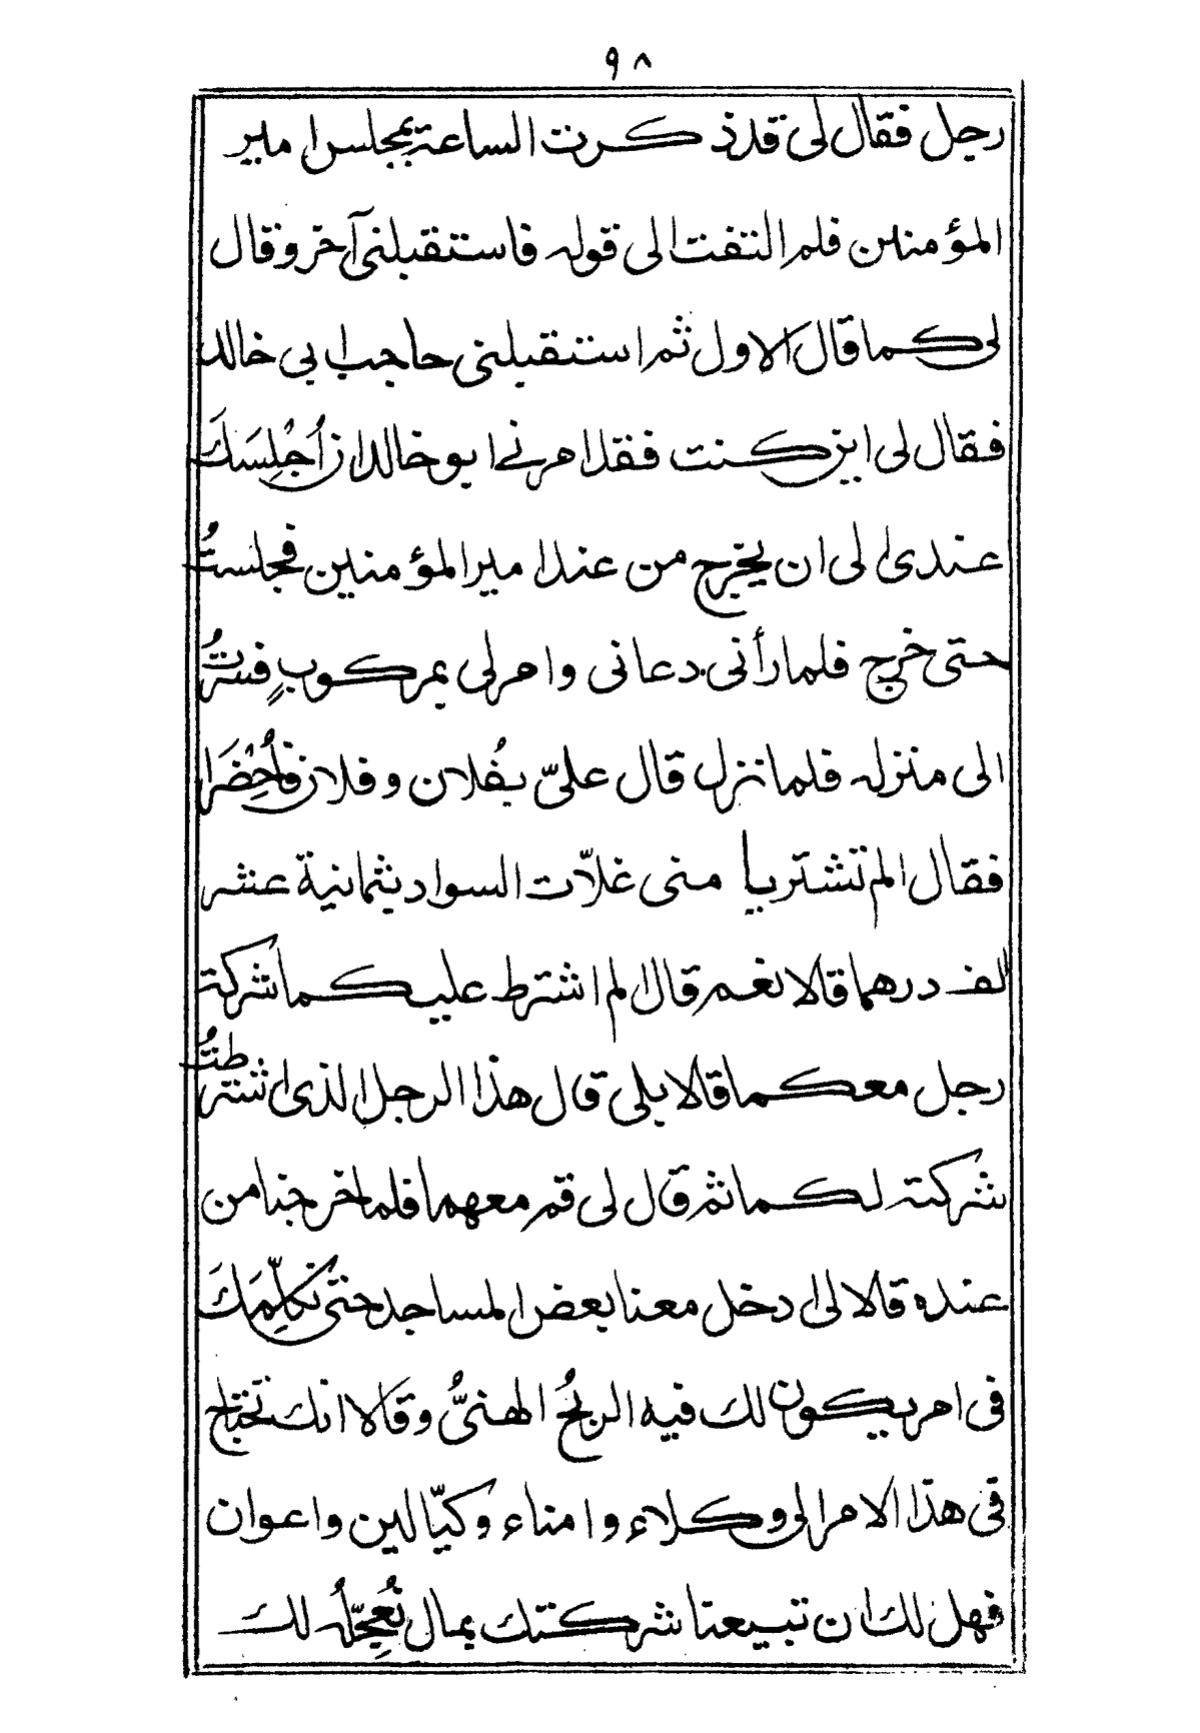 ٩٨
رجل فقال لى قد ذكرت الساعة بمجلس امير
المؤمنين فلم التفت الى قوله فاستقبلنى آخر وقال
لى كما قال الاول ثم استقبلنى حاجب ابى خالد
فقال لى اين كنت فقد امرنے ابو خالد ان اُجْلِسَكَ
عندى الى ان يخرج من عند امير المؤمنين فجلستُ
حتى خرج فلما رأنى دعانى وامر لى بمركوبٍ فسرتُ
الى منزله فلما نزل قال علىّ بفُلان وفلان فاُحْضِرَا
فقال الم تشتريا منى غلّات السواد بثمانية عشر
الف درهما قالا نعم قال الم اشترط عليكما شركة
رجل معكما قالا بلى قال هذا الرجل الذى اشترطتُ
شركته لكما ثم قال لى قم معهما فلما خرجنا من
عنده قالا لى ادخل معنا بعض المساجد حتى نُكلِّمَكَ
فى امر يكون لك فيه الربحُ الهنىُّ وقالا انك تحتاج
فى هذا الامر الى وكلاء وامناء وكيّالين واعوان
فهل لك ان تبيعنا شركتك بمال نُعجِّلُه لك